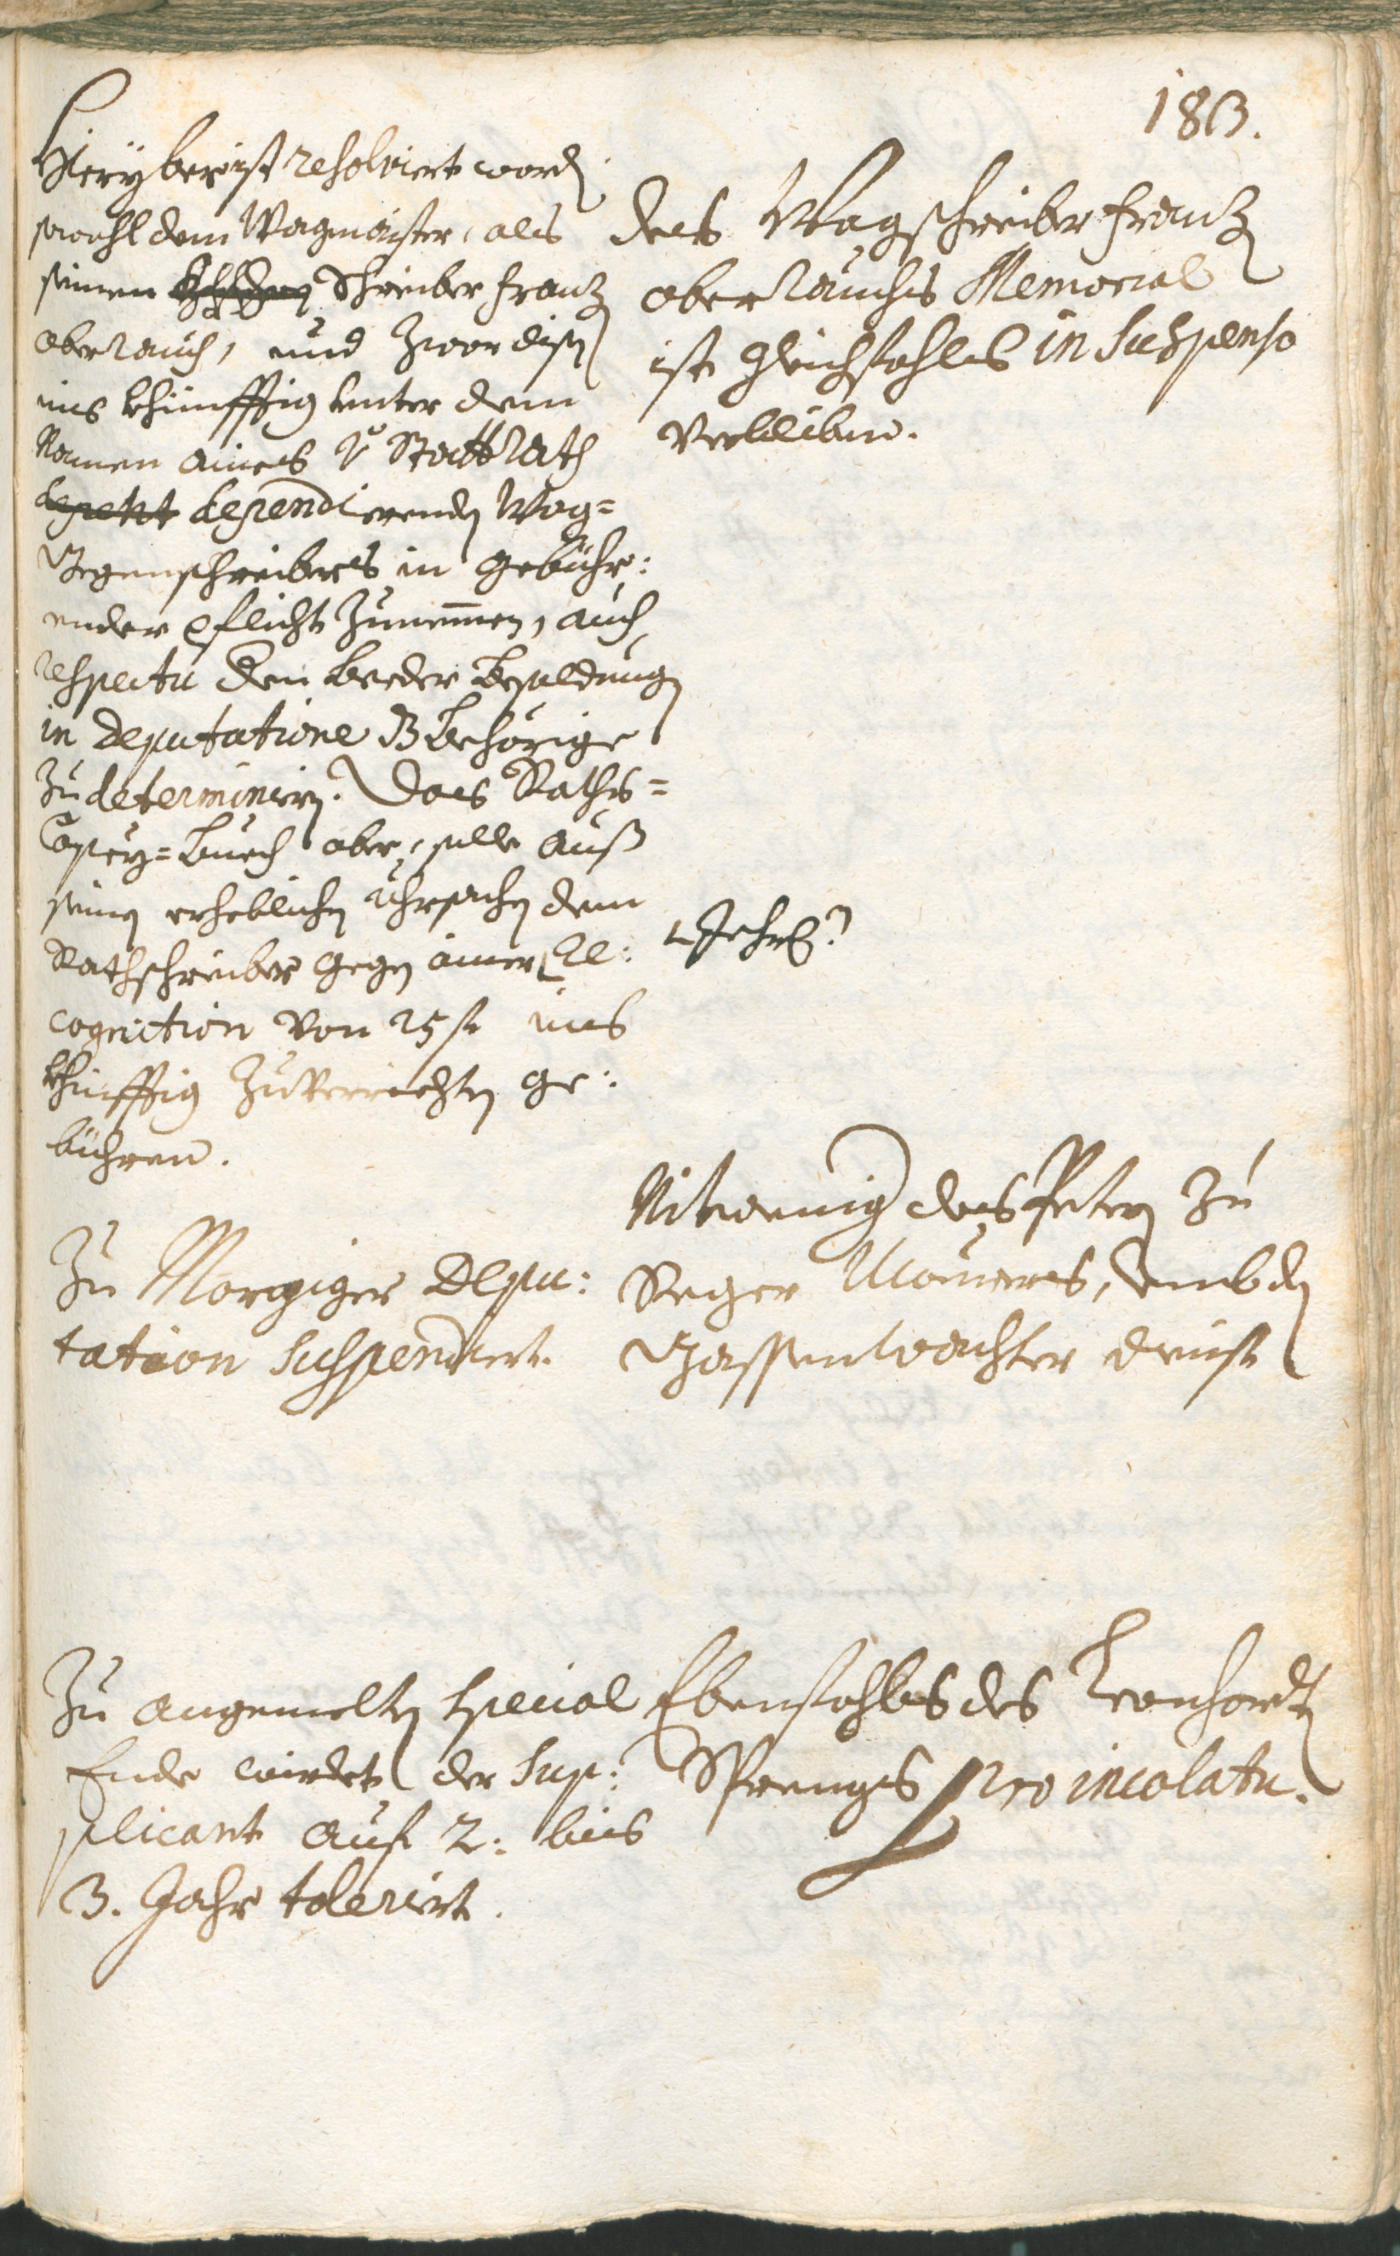 183.
Hieryber ist resolviert word[en]
sowohl dem Wagmaister, als
seinen Schreiber Frantz
oberrauch, und zwar disen
ins khünfftig unter dem
Namen aines Stattrath
depent dependierenden Wag=
Gegenschreibers in gebühr:
ender Pflicht zunemmen, auch
respectu den beeder besoldung
in deputatione behörige
zu determiniern. Das Raths=
Copey=buech aber, solle auß
seinen erheblichen Uhrsachen dem
Rathschreiber gegen ainer Re:
cognition von 25 f ins
khünfftig zuverrichten ge:
bühren.
Jehrl:
des Wagschreiber Frantz
oberrauchs Memorial
ist gleichfahls in Suspenso
verbliben.
Zu Morgiger Depu:
tation suspendiert.
Nitwenig des Peter zu
Seger Maurers, umb den
Gassenwachter dienst
Zu angemelten special
Ende wirdet der Sup:
plicant auf 2: bis
3. Jahr toleriert.
Ebenfahls des Leonhardt
Sprengs pro incolatu.